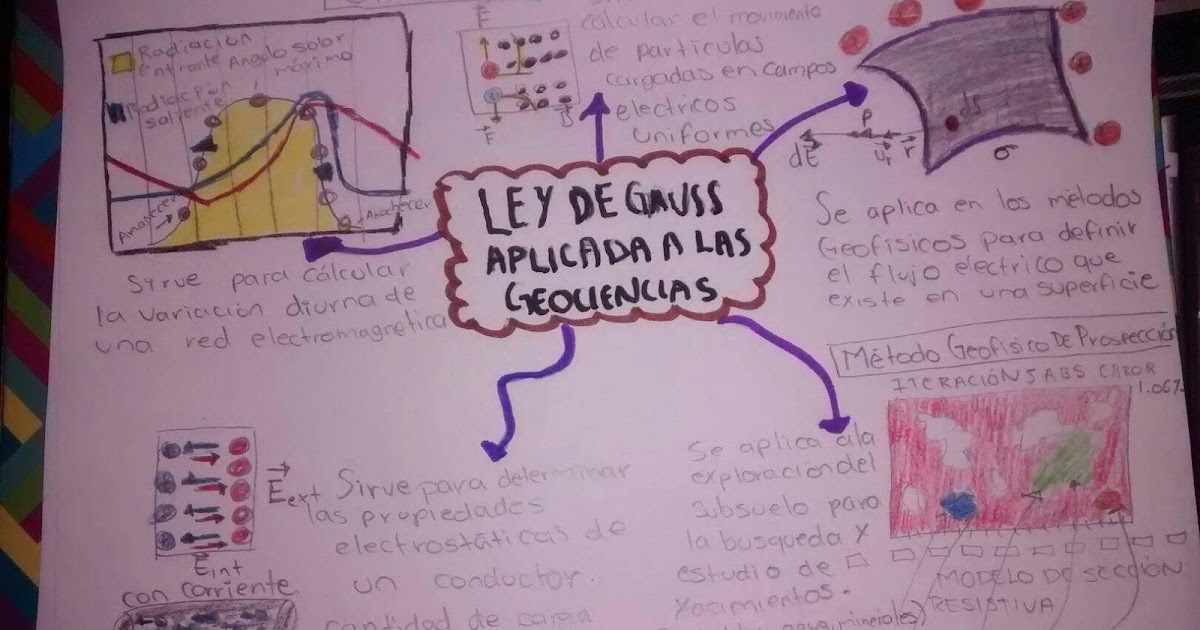 LEY DE GAUSS
APLICADA A LAS
GEOCIENCIAS
Radiación
entrante
Angulo solar
máximo
Radiación
saliente
Amanecer
Anochecer
Sirve para cálcular
la variación diurna de
una red electromagnetica
E
F
B
cálcular el movimento
de particulas
cargadas en campos
electricos
uniformes
dE
P
ur
r
ds
σ
Se aplica en los métodos
Geofísicos para definir
el flujo electrico que
existe en una superficie
Método Geofísico De Prospección
ITERACIÓN 5 ABS
1.06%
Se aplica a la
exploracion del
subsuelo para
la busqueda y
estudio de
yacimientos.
minerales)
MODELO DE SECCIÓN
RESISTIVA
Eext
Eint
con corriente
Sirve para determinar
las propiedades
electrostáticas de
un conductor.
cantidad de carga